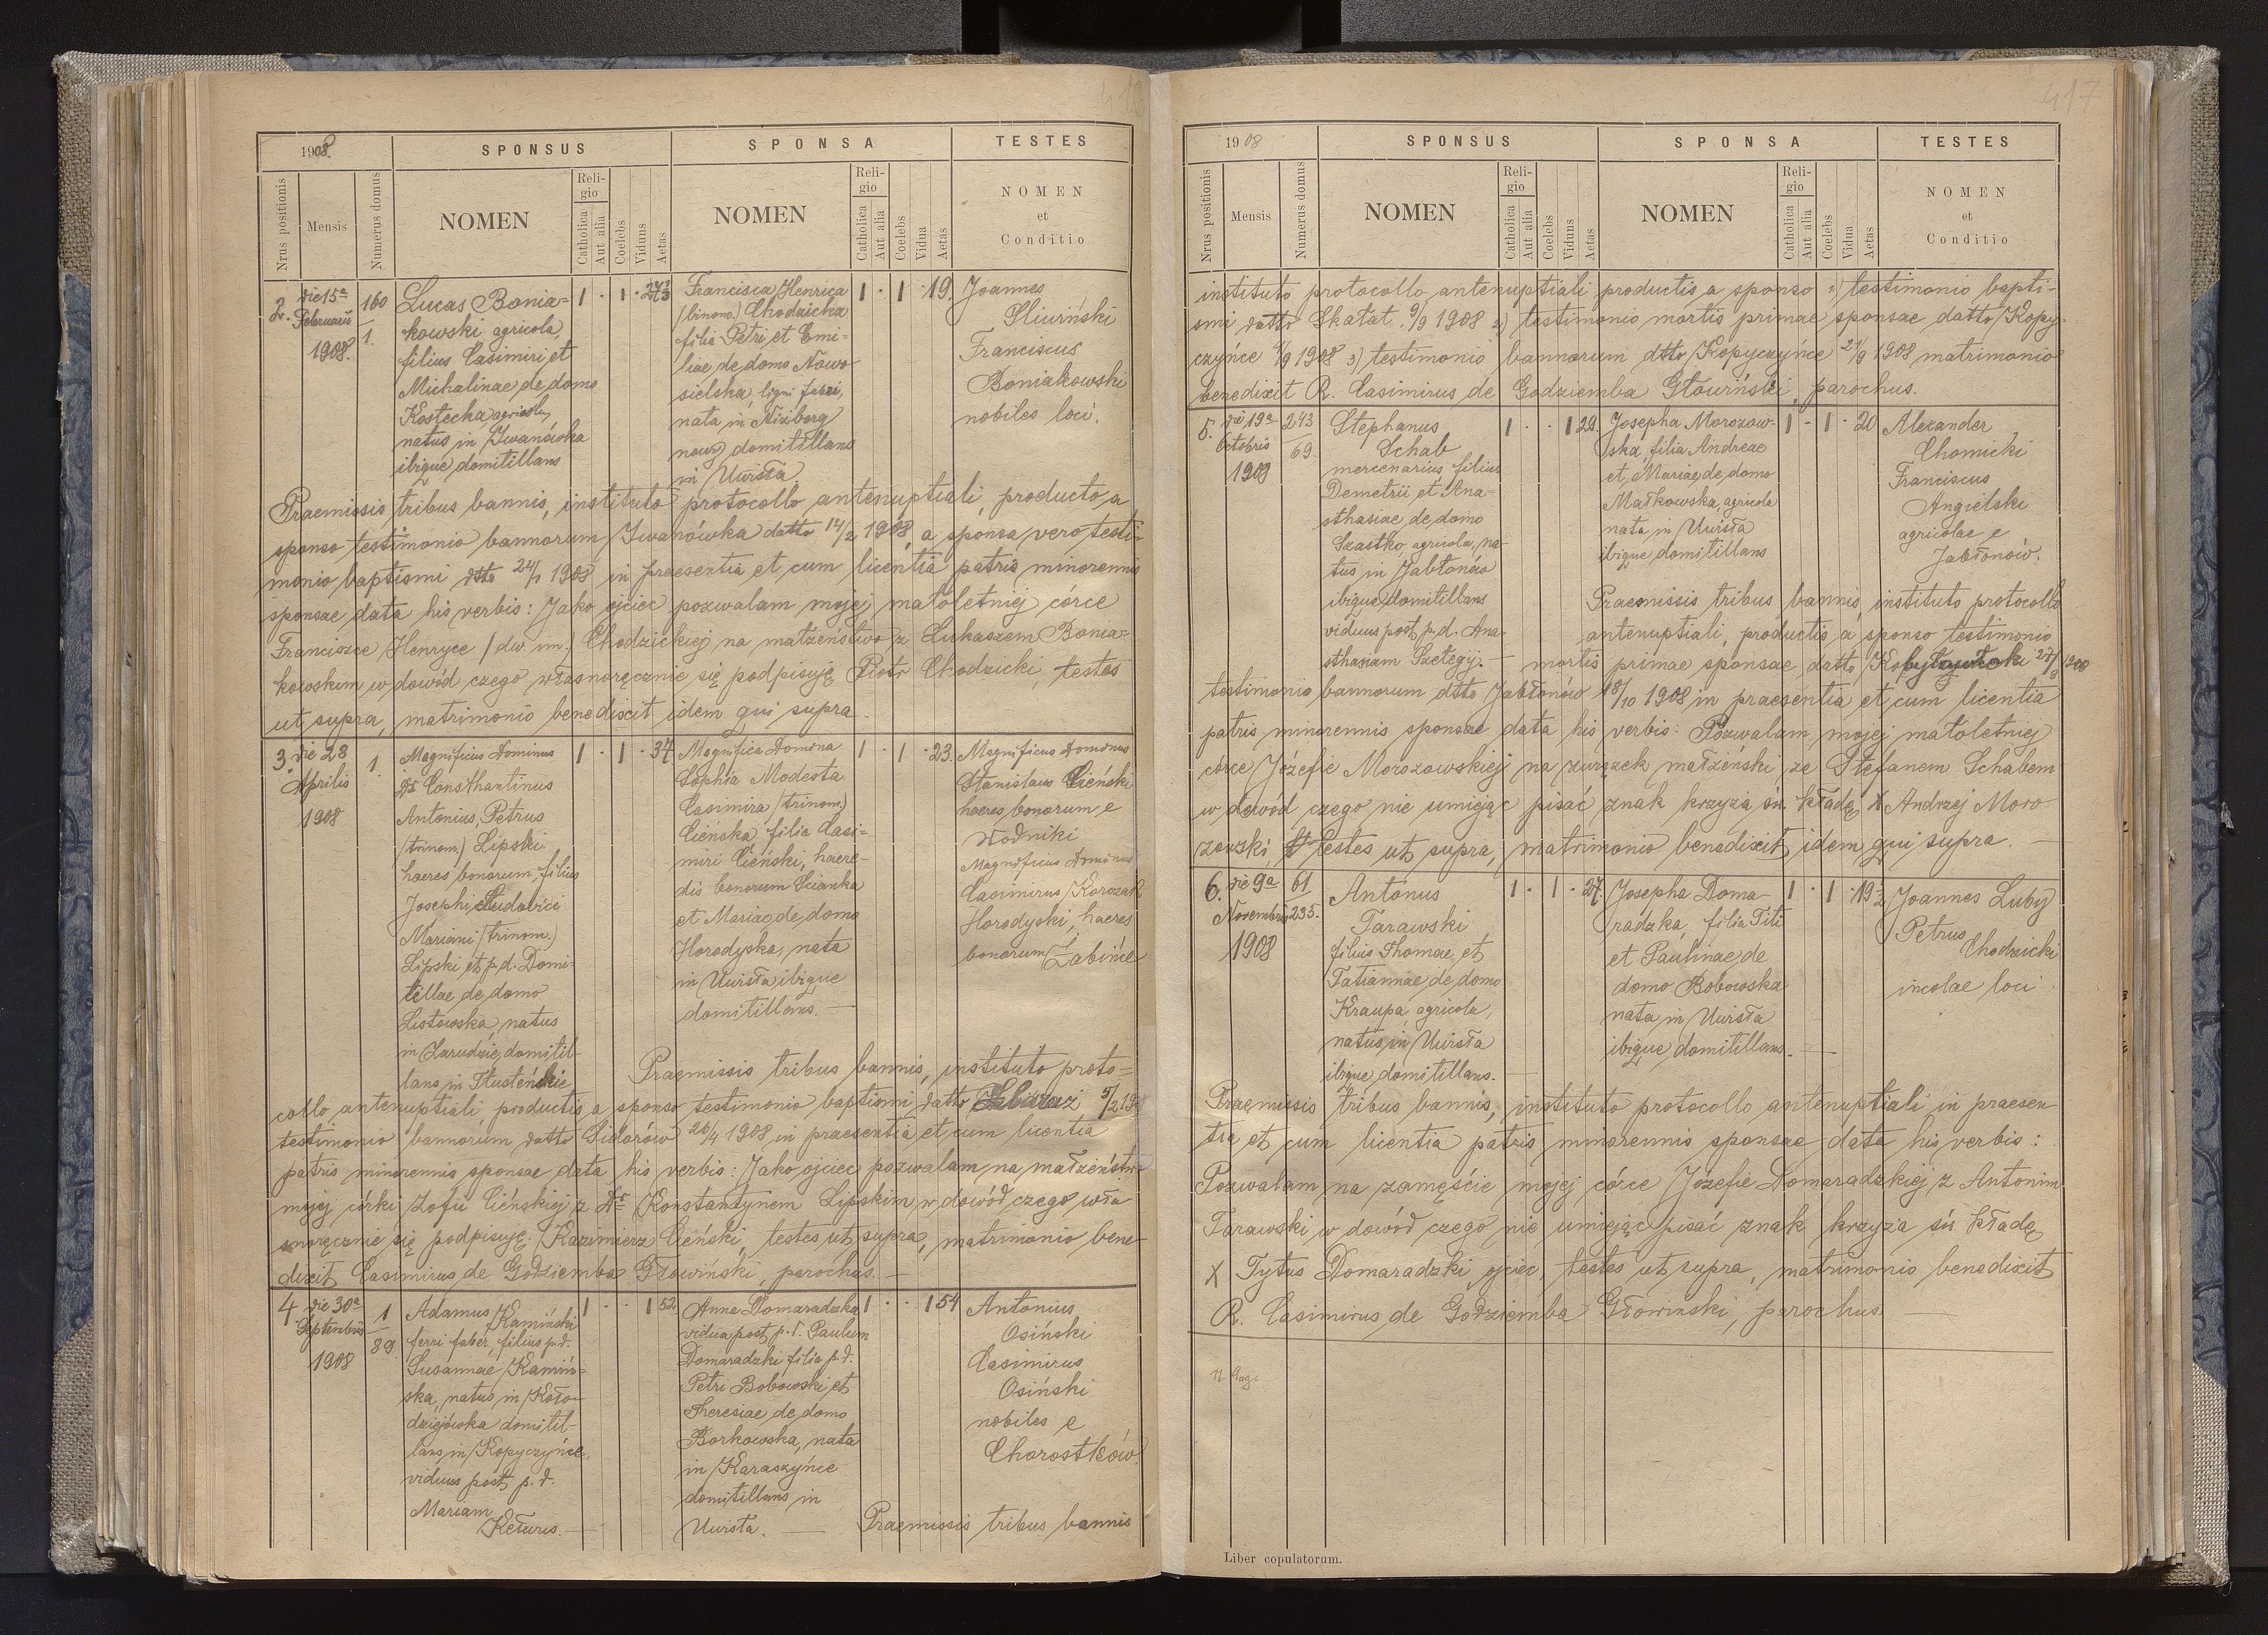 1908.
SPONSUS
SPONSA
TESTES
Nrus positionis
Mensis
Numerus domus
NOMEN
Religio
Catholica
Aut alia
Coelebs
Viduus
Aetas
NOMEN
Religio
Catholica
Aut alia
Coelebs
Vidua
Aetas
NOMEN
et
Conditio
2.
die 15a
Februarii
1908.
160
1.
Lucas Bonia=
kowski agricola,
filius Casimiri et
Michalinae de domo
Kostecka, agricola,
natus in Iwanówka
ibique domitillans
1 · 1 ·
Francisca Henrica
(binom.) Chodzicka
filia Petri et Emi-
liae de domo Nowo
sielska, ligni fabri,
nata in Niżborg
nowy domitillans
in Uwisła.
1 · 1 · 19.
Joannes
Śliwiński
Franciscus
Boniakowski
nobiles loci.
Praemissis tribus bannis, instituto protocollo antenuptiali, producto a
sponso testimonio bannorum Iwanówka datto 14/2 1908, a sponsa vero testi-
monio baptismi dtto 24/1 1908 in praesentia et cum licentia patris minorennis
sponsae data his verbis: Jako ojciec pozwalam mojej małoletniej córce
Franciszce Henryce (dw. im.) Chodzickiej na małżeństwo z Łukaszem Bonia-
kowskim w dowód czego własnoręcznie się podpisuję Piotr Chodzicki, testes
ut supra, matrimonio benedixit idem qui supra
3.
die 28
Aprilis
1908
1.
Magnificus Dominus
Dr Consthantinus
Antonius, Petrus
(trinom.) Lipski.
haeres bonorum, filius
Josephi Ludovici
Mariani (trinom.)
Lipski et p.d. Domi-
tillae de domo
Listowska, natus
in Zarudzie, domitil-
lans in Tłusteńkie
1 · 1 · 37
Magnifica Domina
Sophia Modesta
Casimira (trinom.)
Cieńska, filia Casi-
miri Cieński, haere-
dis bonorum Ścianka
et Mariae, de domo
Horodyska, nata
in Uwisła ibique
domitillans.
1 · 1 · 23.
Magnificus Dominus
Stanislaus Cieński
haeres bonorum e
Wodniki
Magnificus Dominus
Casimirus Korczak
Horodyski, haeres
bonorum Żabińce
Praemissis tribus bannis, instituto proto-
collo antenuptiali productis a sponso testimonio baptismi datto Zbaraż 5/2 19
testimonio bannorum datto Sidorów 26/4 1908 in praesentia et cum licentia
patris minorennis sponsae data his verbis: Jako ojciec pozwalam na małżeństwo
mojej córki Zofii Cieńskiej z Dr Konstantynem Lipskim w dowód czego wła
snoręcznie się podpisuję. Kazimierz Cieński, testes ut supra, matrimonio bene-
dixit Casimirus de Godziemba Głowiński, parochus.
4
die 30a
Septembris
1908
1
89
Adamus Kamiński
ferri faber, filius p.d.
Susannae Kamiń-
ska, natus in Koło-
dziejówka domitil-
lans in Kopyczyńce,
viduus post p. d.
Mariam
1 · · 1 52.
Anna Domaradzka
vidua post p. d. Paulum
Domaradzki filia p.d.
Petri Bobowski et
Theresiae de domo
Borkowska, nata
in Karaszyńce
domitillans in
Uwisła.
1 · · 1 54
Antonius
Osiński
Casimirus
Osiński
nobiles e
Chorostków.
Praemissis tribus bannis
417
1908
SPONSUS
SPONSA
TESTES
Nrus positionis
Mensis
Numerus domus
NOMEN
Religio
Catholica
Aut alia
Coelebs
Viduus
Aetas
NOMEN
Religio
Catholica
Aut alia
Coelebs
Vidua
Aetas
NOMEN
et
Conditio
instituto protocollo antenuptiali productis a sponso 1) testimonio bapti-
smi datto Skałat 9/9 1908 2) testimonio mortis primae sponsae datto Kopy-
czyńce 1908 3) testimonio bannorum dtto Kopyczyńce 1908 matrimonio
benedixit R. Casimirus de Godziemba Głowiński, parochus.
5.
die 19a
Octobris
1908
243
69
Stephanus
Schab
mercenarius filius
Demetrii et Ana-
sthasiae, de domo
Szastko, agricola, na-
tus in Jabłonów
ibique domitillans
viduus post p. d. Ana-
sthasiam
1 · · 1 29.
Josepha Morozow-
ska, filia Andreae
et Mariae, de domo
Małkowska, agricola
nata in Uwisła
ibique domitillans
1 · 1 · 20
Alexander
Chomicki
Franciscus
Angielski
agricolae e
Jabłonów.
Praemissis tribus bannis, instituto protocollo
antenuptiali, productis a sponso testimonio
mortis primae sponsae, datto 27/8 1908
testimonio bannorum dtto Jabłonów 18/10 1908 in praesentia et cum licentia
patris minorennis sponsae data his verbis: Pozwalam mojej małoletniej
córce Józefie Morozowskiej na związek małżeński ze Stefanem Schabem
w dowód czego nie umiejąc pisać znak krzyża św. kładę X Andrzej Moro
zowski testes ut supra, matrimonio benedixit idem qui supra.
6.
die 9a
Novembris
1908
61
235.
Antonus
Tarawski
filius Thomae, et
Tatiannae de domo
Kraupa, agricola,
natus in Uwisła
ibique domitillans.
1 · 1 · 27.
Josepha Doma-
radzka, filia Titi
et Paulinae de
domo Bobowska
nata in Uwisła
ibique domitillans.
1 · 1 · 19 1/2
Joannes Luby
Petrus
Chodzicki
incolae loci
Praemissis tribus bannis, instituto protocollo antenuptiali in praesen
tia et cum licentia patris minorennis sponsae data his verbis:
Pozwalam na zamęście mojej córce Józefie Domaradzkiej z Antonim
Tarawski w dowód czego nie umiejąc pisać znak krzyża św. kładę
X Tytus Domaradzki ojciec, testes ut supra, matrimonio benedixit
R. Casimirus de Godziemba Głowinski, parochus
Liber copulatorum.